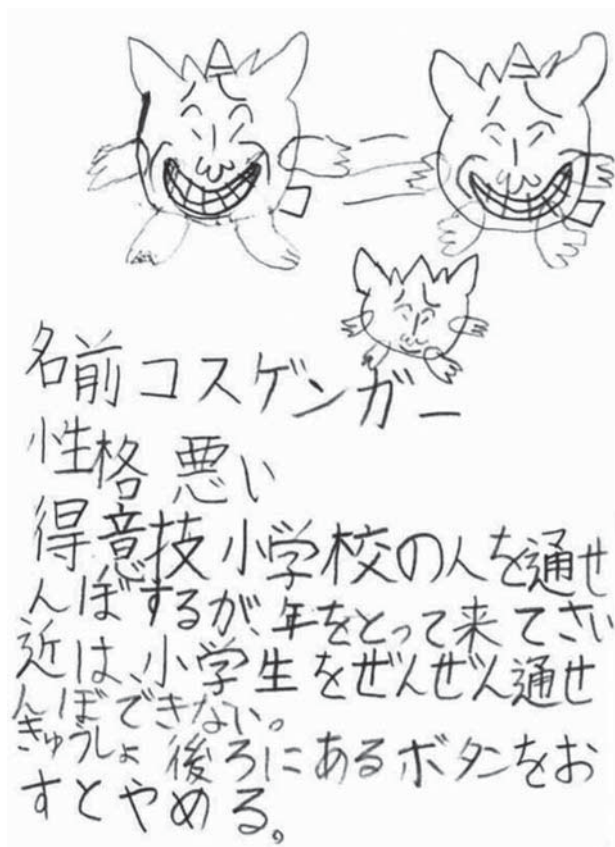 名前コスゲンガー
性格 悪い
得意技小学校の人を通せ
んぼするが、年をとって来てさい
近は、小学生をぜんぜん通せ
んぼできない。
きゅうしょ 後ろにあるボタンをお
すとやめる。